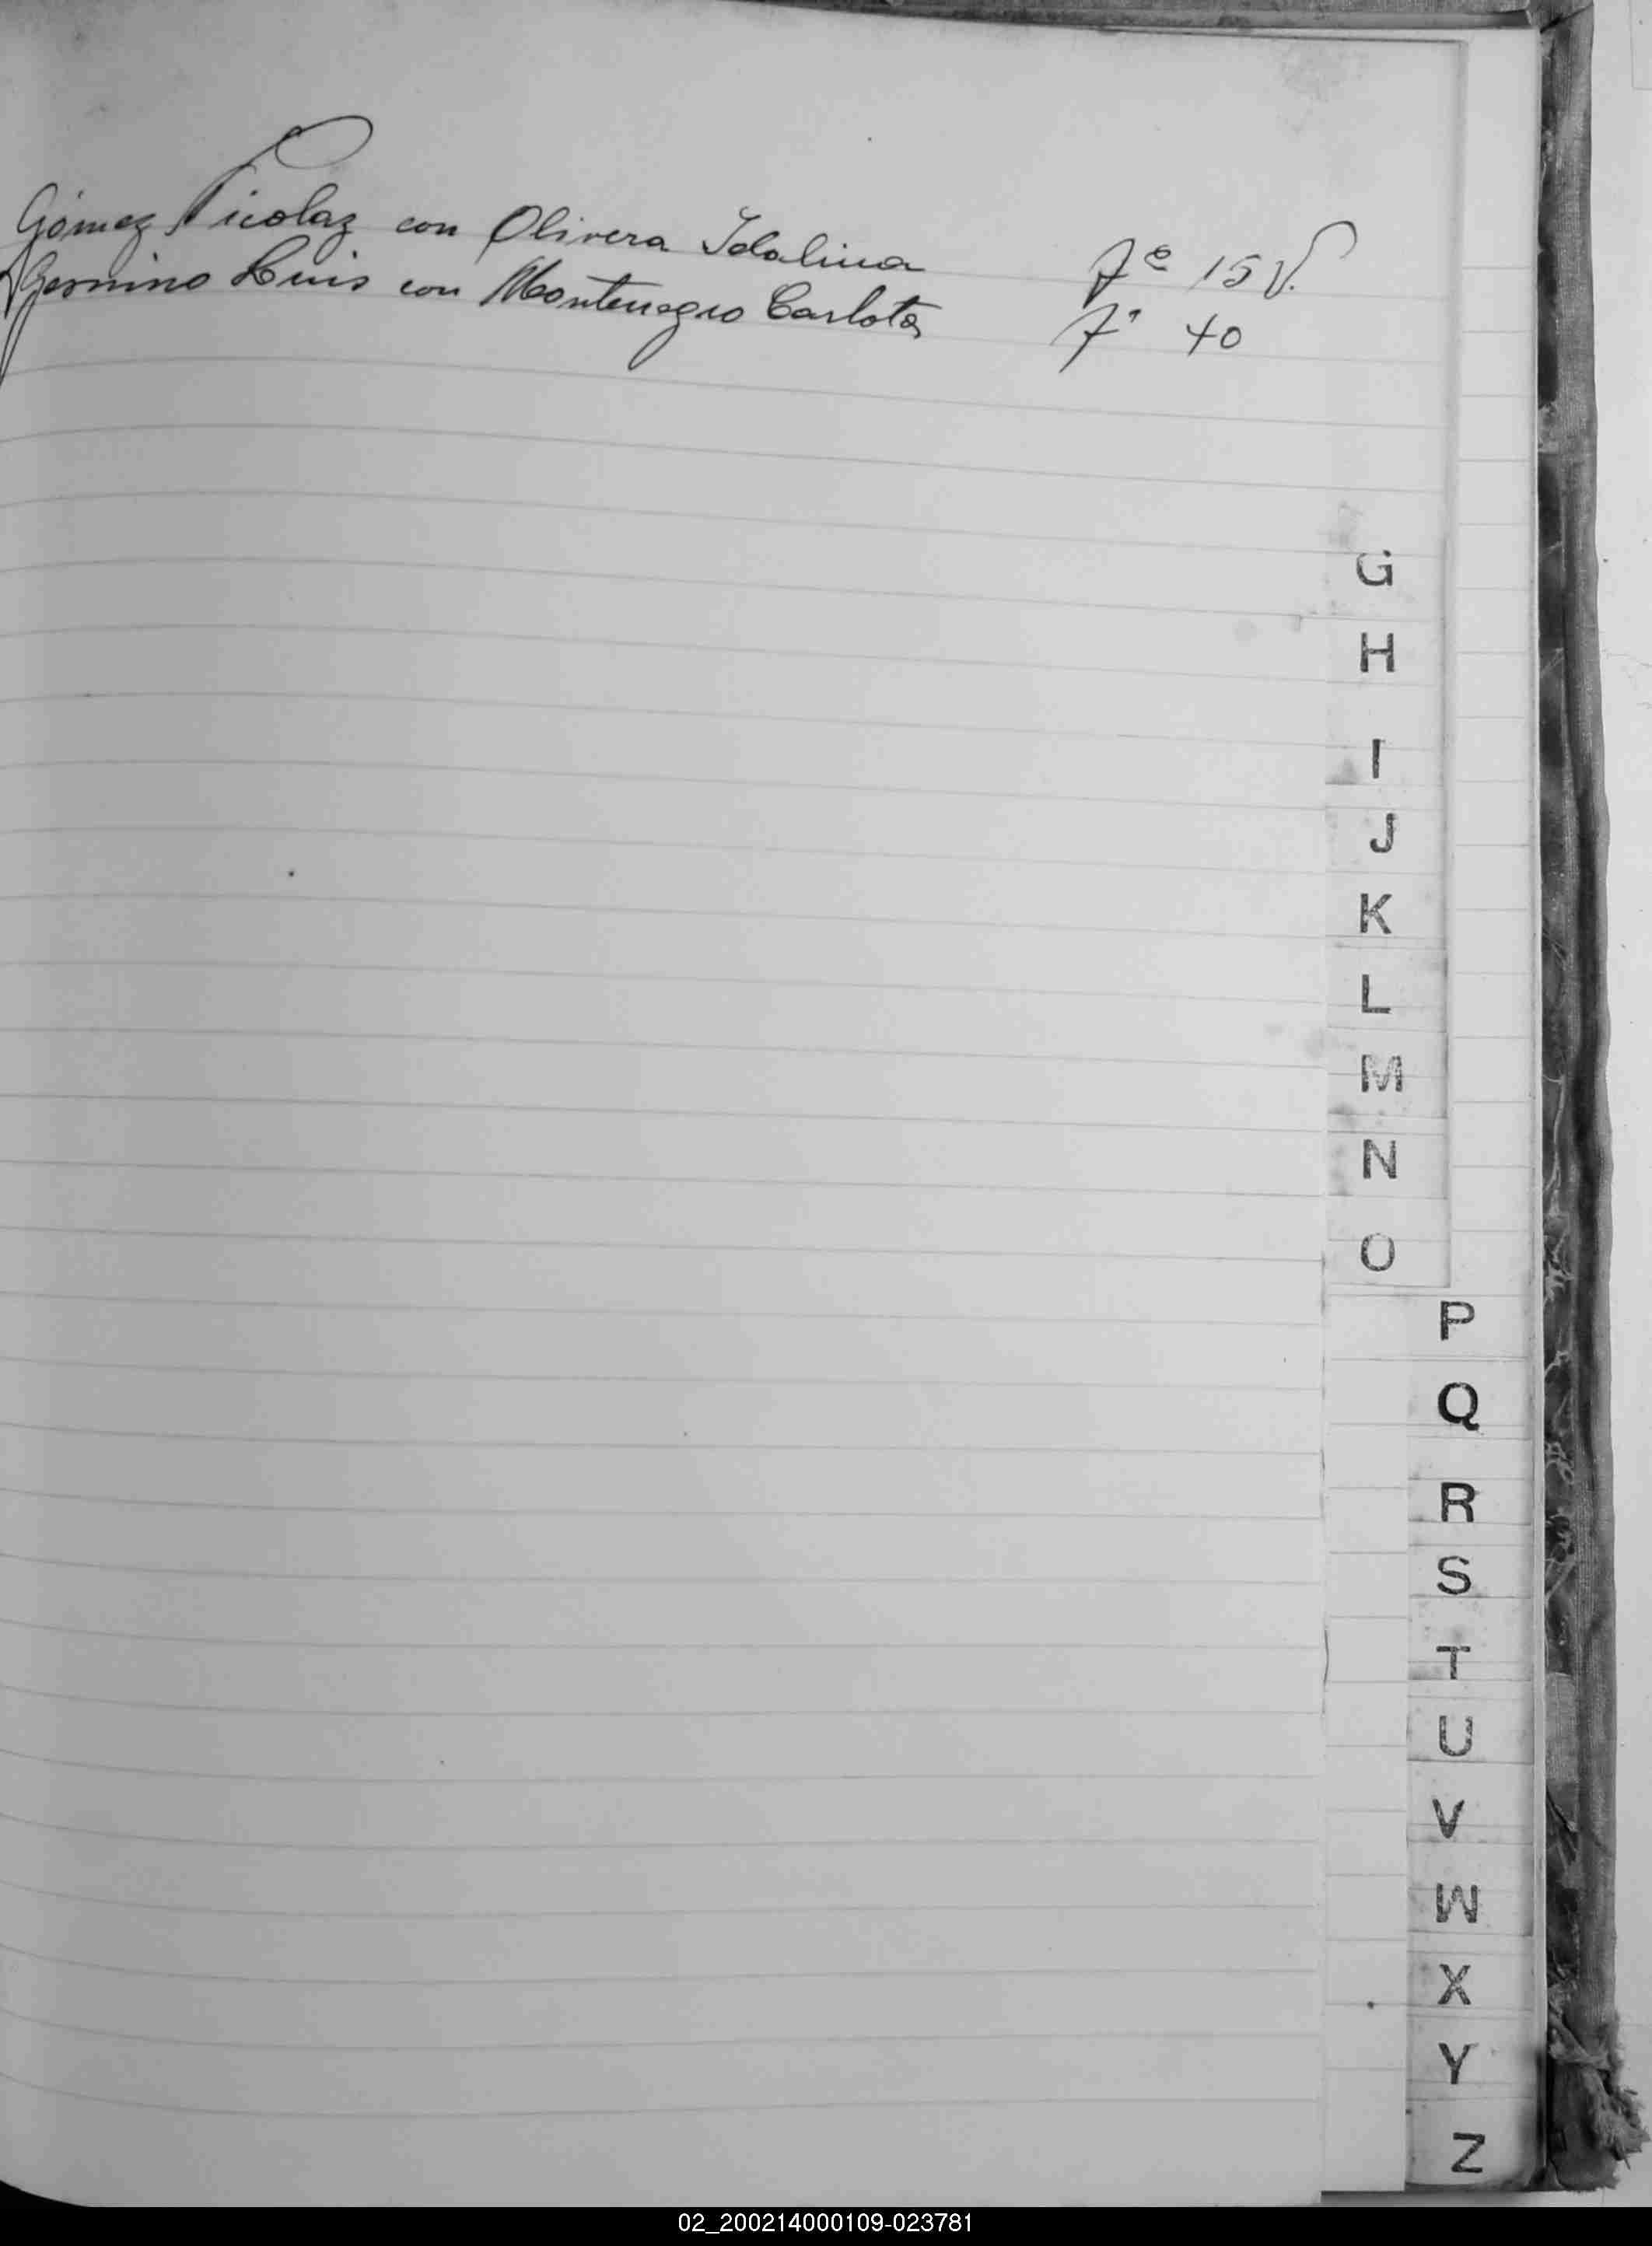 Gómez Nicolaz con Olivera Idalina Fº 15 V.
Germino Luis con Montenegro Carlota Fº 40
G
H
I
J
K
L
M
N
O
P
Q
R
S
T
U
V
W
X
Y
Z
02_200214000109-023781